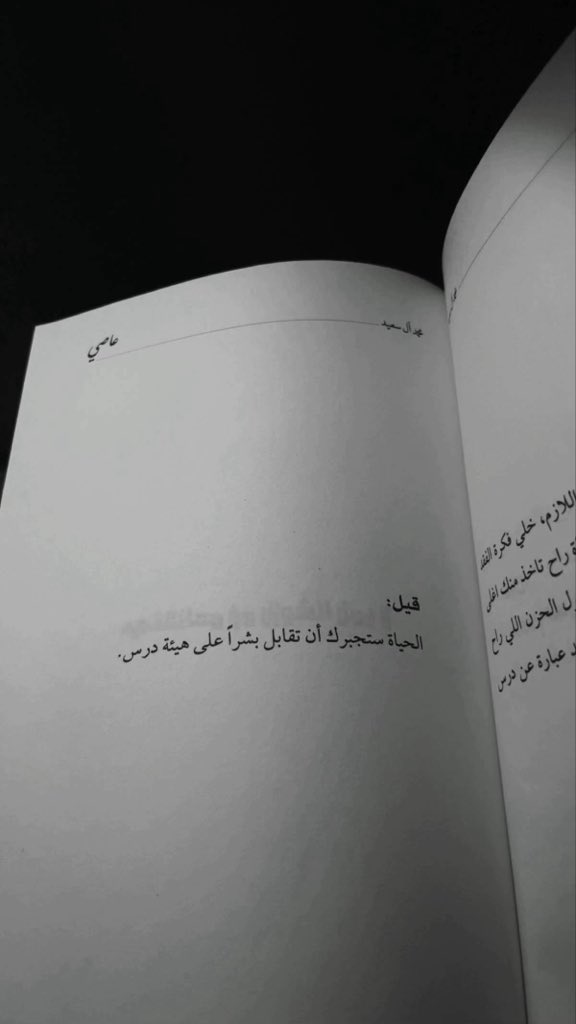 محمد آل سعيد
عاصي
قيل:
الحياة ستجبرك أن تقابل بشراً على هيئة درس.
اللازم، خلي فكرة الفقد
راح تاخذ منك اغلى
الحزن اللي راح
عبارة عن درس